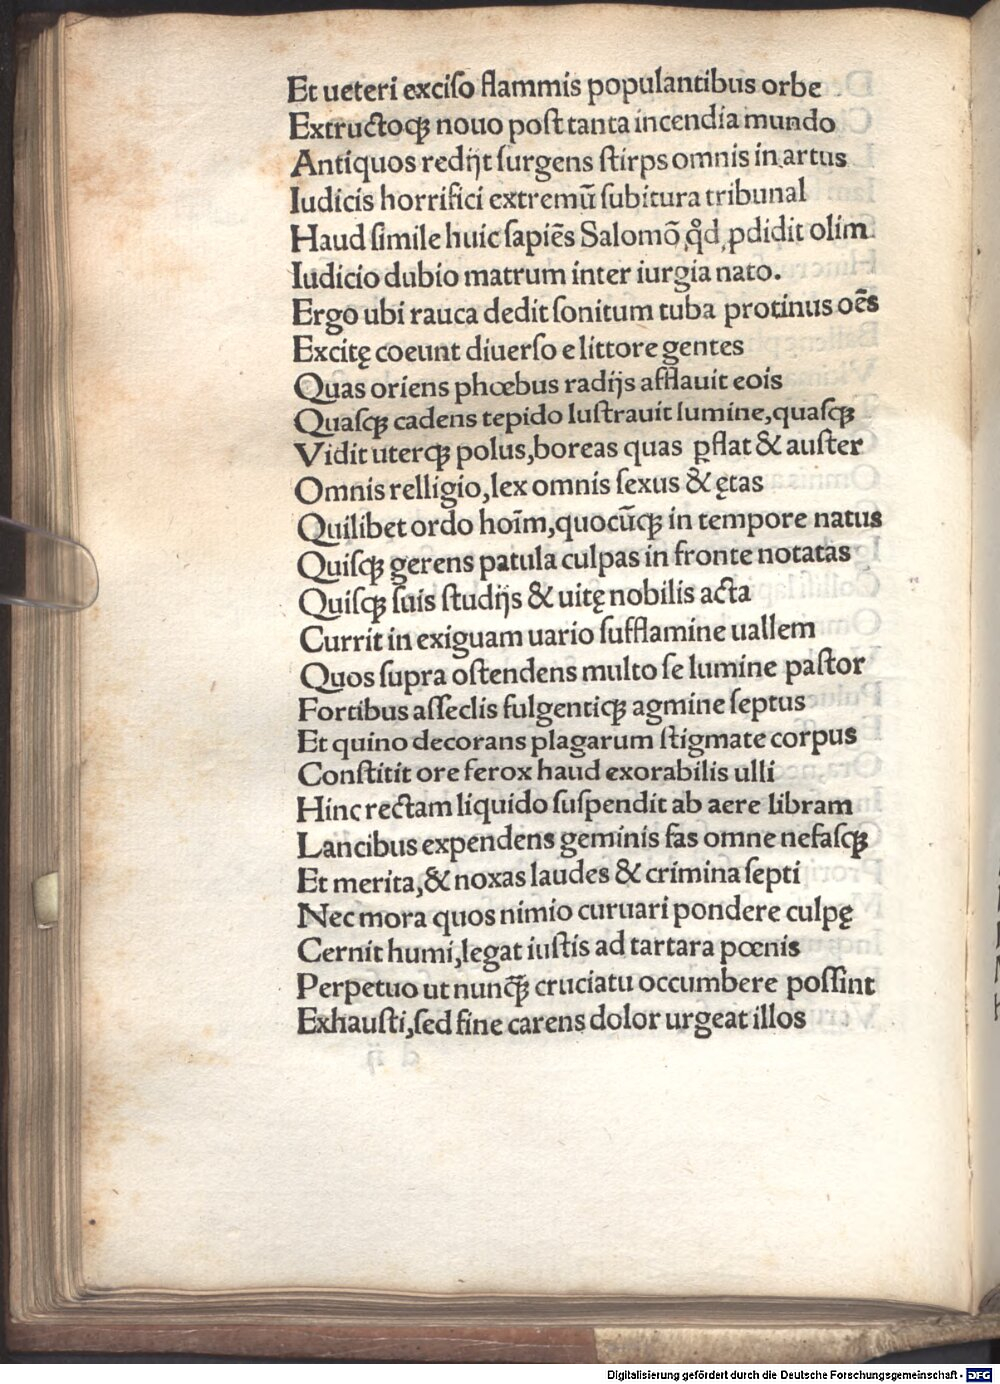 Et ueteri exciſo flammis populantibus orbe
Extructoqꝫ nouo poſt tanta incendia mundo
Antiquos redijt ſurgens ſtirps omnis in artus
Iudicis horrifici extremũ ſubitura tribunal
Haud ſimile huic ſapiẽs Salomõ, qd̊ ꝓdidit olim
Iudicio dubio matrum inter iurgia nato.
Ergo ubi rauca dedit ſonitum tuba protinus oẽs
Excitę coeunt diuerſo e littore gentes
Quas oriens phœbus radijs afflauit eois
Quaſqꝫ cadens tepido luſtrauit lumine, quaſqꝫ
Vidit uterqꝫ polus, boreas quas ꝑflat & auſter
Omnis relligio, lex omnis ſexus & ętas
Quilibet ordo hoĩm, quocũqꝫ in tempore natus
Quiſqꝫ gerens patula culpas in fronte notatas
Quiſqꝫ ſuis ſtudijs & uitę nobilis acta
Currit in exiguam uario ſufflamine uallem
Quos ſupra oſtendens multo ſe lumine paſtor
Fortibus aſſeclis fulgentiqꝫ agmine ſeptus
Et quino decorans plagarum ſtigmate corpus
Conſtitit ore ferox haud exorabilis ulli
Hinc rectam liquido ſuſpendit ab aere libram
Lancibus expendens geminis fas omne nefaſqꝫ
Et merita, & noxas laudes & crimina ſepti
Nec mora quos nimio curuari pondere culpę
Cernit humi, legat iuſtis ad tartara pœnis
Perpetuo ut nunq̃ꝫ cruciatu occumbere poſſint
Exhauſti, ſed fine carens dolor urgeat illos
Digitalisierung gefördert durch die Deutsche Forschungsgemeinschaft - DFG